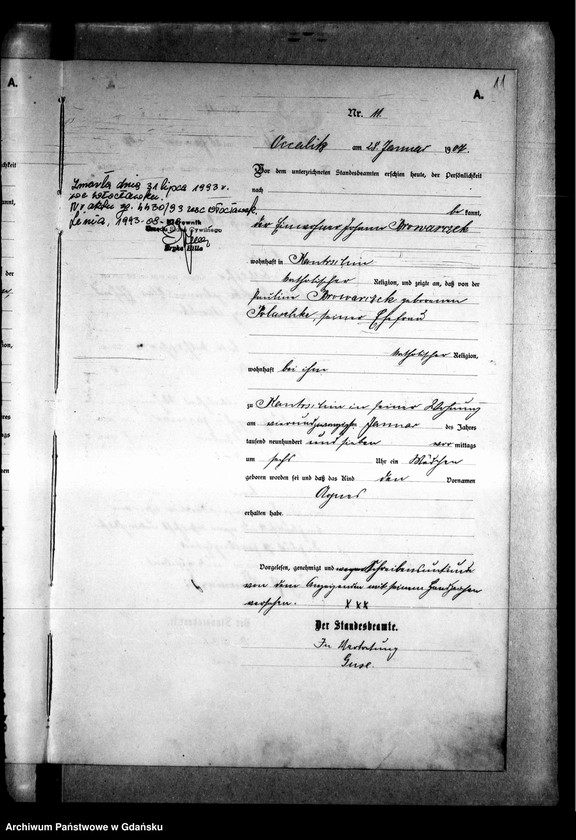 A.
11
A.
Nr. 11.
am 28 Januar 1907.
Vor dem unterzeichneten Standesbeamten erschien heute, der Persönlichkeit
nach
be kannt,
der Einwohner Johann Browarczek
wohnhaft in
katholischer Religion, und zeigte an, daß von der
Pauline Browarczek geborenen
seiner Ehefrau
katholischer Religion,
wohnhaft bei ihm
zu in seiner Wohnung
am vierundzwanzigsten Januar des Jahres
tausend neunhundert und sieben vor mittags
um sechs Uhr ein Mädchen
geboren worden sei und daß das Kind den Vornamen
Agnes
erhalten habe.
Vorgelesen, genehmigt und wegen Schreibensunkunde
von dem Anzeigenden mit seinem Handzeichen
versehen. X X X
Der Standesbeamte.
In Vertretung
Guse
Zmarła dnia 31 lipca 1993 r.
we Włocławku.
Nr aktu zg. 4430/93 usc Włocławek
Linia, 1993-08-
Kierownik
Urzędu Stanu Cywilnego
Bryka Hilla
Archiwum Państwowe w Gdańsku